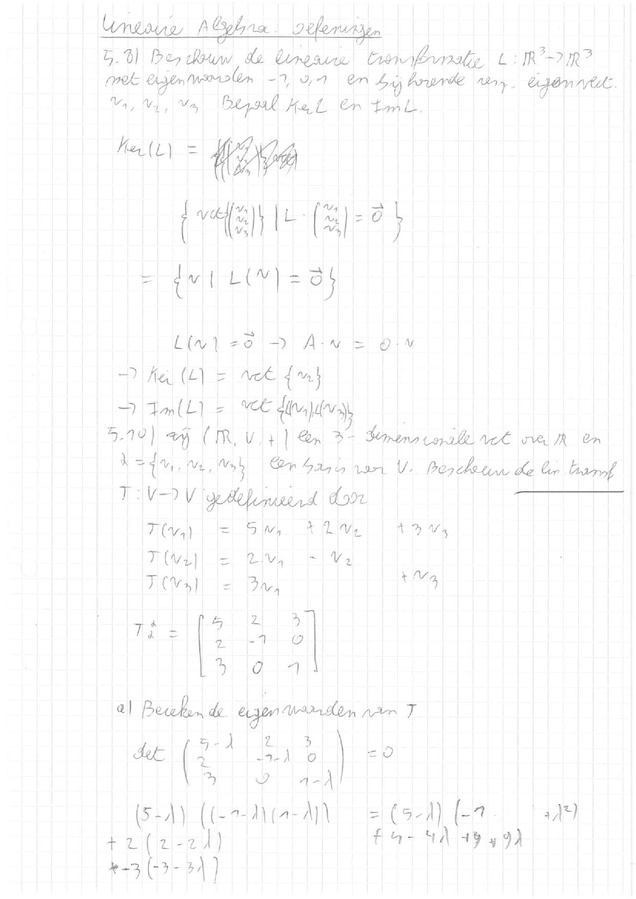 Lineaire Algebra: oefeningen
5.8) Beschouw de lineaire transformatie L: ℝ³→ℝ³
met eigenwaarden -1, 0, 1 en bijhorende resp. eigenvect.
v₁, v₂, v₃ Bepaal Ker L en Im L.
Ker(L) =
{ vct{(v₁ v₂ v₃)} | L · (v₁ v₂ v₃) = 0⃗ }
= { v | L(v) = 0⃗ }
L(v) = 0⃗ → A · v = 0 · v
→ Ker(L) = vct {v₂}
→ Im(L) = vct {L(v₁), L(v₃)}
5.10) zij (ℝ, V, +) een 3-dimensionale vct over ℝ en
α = {v₁, v₂, v₃} een basis van V. Beschouw de lin transf
T: V → V gedefinieerd door
T(v₁) = 5v₁ + 2v₂ + 3v₃
T(v₂) = 2v₁ - v₂
T(v₃) = 3v₁ + v₃
T α α = [ 5 2 3
2 -1 0
3 0 1 ]
a) Bereken de eigenwaarden van T
det ( 5-λ 2 3
2 -1-λ 0 = 0
3 0 1-λ )
(5-λ) ((-1-λ)(1-λ)) = (5-λ) (-1 + λ²)
+ 2 (2-2λ) + 4 - 4λ + 9 + 9λ
-3 (-3-3λ)